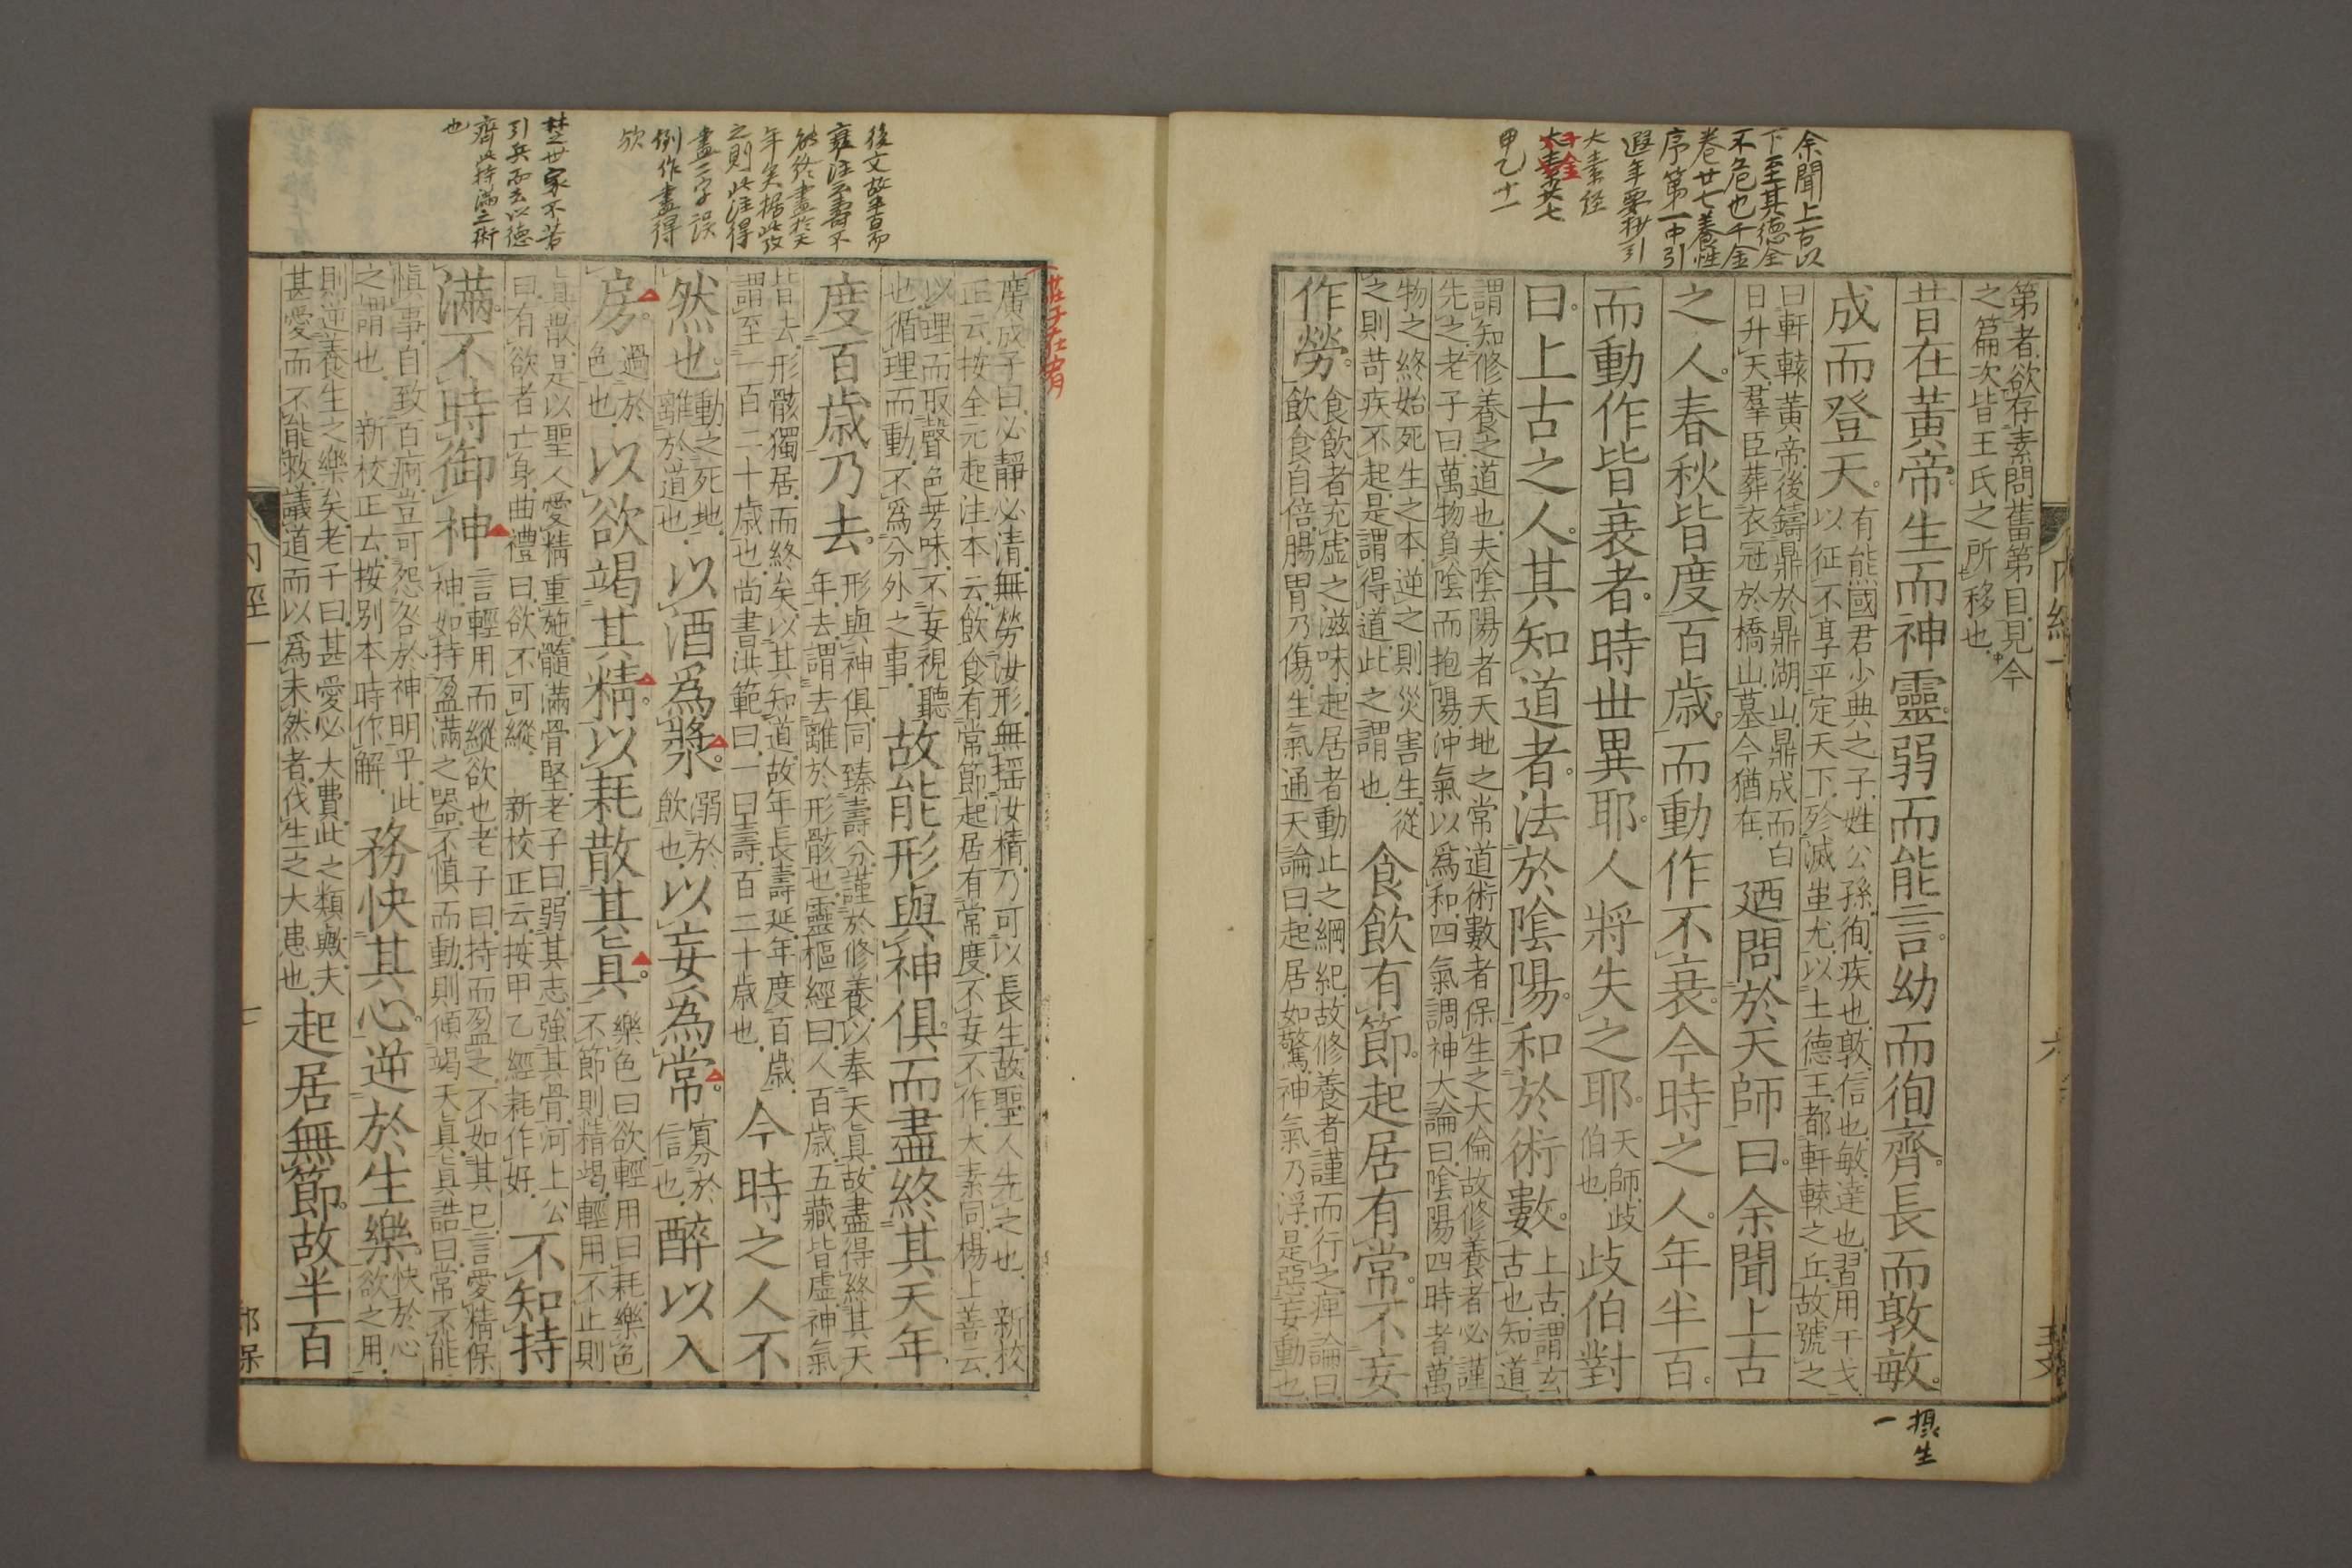 余聞上古以
下至其德全
不危也千金
卷廿七養性
序第一中引
遐年要抄引
大素経
甲乙十一
第者欲存素問舊第目見今
之篇次皆王氏之所移也
昔在黃帝生而神靈弱而能言幼而徇齊長而敦敏
成而登天
有熊國君少典之子姓公孫徇疾也敦信也敏達也習用干戈
以征不享平定天下殄滅蚩尤以土德王都軒轅之丘故號之
曰軒轅黃帝後鑄鼎於鼎湖山鼎成而白
日升天羣臣葬衣冠於橋山墓今猶在
廼問於天師曰余聞上古
之人春秋皆度百歳而動作不衰今時之人年半百
而動作皆衰者時世異耶人將失之耶
天師歧
伯也
歧伯對
曰上古之人其知道者法於陰陽和於術數
上古謂玄
古也知道
謂知修養之道也夫陰陽者天地之常道術數者保生之大倫故修養者必謹
先之老子曰萬物負陰而抱陽沖氣以爲和四氣調神大論曰陰陽四時者萬
物之終始死生之本逆之則災害生從
之則苛疾不起是謂得道此之謂也
食飲有節起居有常不妄
作勞
食飲者充虚之滋味起居者動止之綱紀故修養者謹而行之痺論曰
飲食自倍腸胃乃傷生氣通天論曰起居如驚神氣乃浮是惡妄動也
内經一
六
攝生
一
後文故半百而
衰注云壽不
能終盡於天
年矣据此攷
之則此注得
盡二字誤
例作盡得
欤
楚世家不若
引兵而去以德
齊此持滿之術
也
莊子在宥
廣成子曰必靜必清無勞汝形無揺汝精乃可以長生故聖人先之也　新校
正云按全元起注本云飲食有常節起居有常度不妄不作太素同楊上善云
以理而取聲色芳味不妄視聽
也循理而動不爲分外之事
故能形與神俱而盡終其天年
度百歳乃去
形與神俱同臻壽分謹於修養以奉天眞故盡得終其天
年去謂去離於形骸也靈樞經曰人百歳五藏皆虚神氣
皆去形骸獨居而終矣以其知道故年長壽延年度百歳
謂至一百二十歳也尚書洪範曰一曰壽百二十歳也
今時之人不
然也
動之死地
離於道也
以酒爲漿
溺於
飲也
以妄為常
寡於
信也
醉以入
房
過於
色也
以欲竭其精以耗散其眞
樂色曰欲輕用曰耗樂色
不節則精竭輕用不止則
眞散是以聖人愛精重施髓滿骨堅老子曰弱其志強其骨河上公
曰有欲者亡身曲禮曰欲不可縱　新校正云按甲乙經耗作好
不知持
滿不時御神
言輕用而縱欲也老子曰持而盈之不如其已言愛精保
神如持盈滿之器不慎而動則傾竭天眞眞誥曰常不能
慎事自致百痾豈可怨咎於神明乎此
之謂也　新校正云按別本時作解
務快其心逆於生樂
快於心
欲之用
則逆養生之樂矣老子曰甚愛必大費此之類歟夫
甚愛而不能救議道而以爲未然者伐生之大患也
起居無節故半百
内經一
七